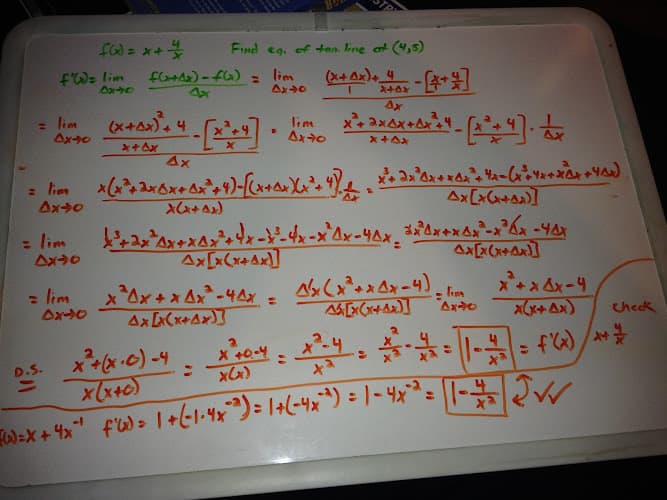 f(x) = x + 4/x   Find eq. of tan. line at (4,5)
f'(x) = lim Δx→0 f(x+Δx) - f(x) / Δx = lim Δx→0 (x+Δx)/1 + 4/(x+Δx) - [x/1 + 4/x] / Δx
= lim Δx→0 ((x+Δx)² + 4)/(x+Δx) - [(x²+4)/x] / Δx = lim Δx→0 (x² + 2xΔx + Δx² + 4)/(x+Δx) - [(x²+4)/x] · 1/Δx
= lim Δx→0 x(x² + 2xΔx + Δx² + 4) - [(x+Δx)(x²+4)] / x(x+Δx) · 1/Δx = x³ + 2x²Δx + xΔx² + 4x - (x³ + 4x + x²Δx + 4Δx) / Δx[x(x+Δx)]
= lim Δx→0 x³ + 2x²Δx + xΔx² + 4x - x³ - 4x - x²Δx - 4Δx / Δx[x(x+Δx)] = 2x²Δx + xΔx² - x²Δx - 4Δx / Δx[x(x+Δx)]
= lim Δx→0 x²Δx + xΔx² - 4Δx / Δx[x(x+Δx)] = Δx(x² + xΔx - 4) / Δx[x(x+Δx)] = lim Δx→0 x² + xΔx - 4 / x(x+Δx)
D.S. = x² + (x·0) - 4 / x(x+0) = x² + 0 - 4 / x(x) = x² - 4 / x² = x²/x² - 4/x² = 1 - 4/x² = f'(x)
check
x + 4/x
f(x) = x + 4x⁻¹   f'(x) = 1 + (-1·4x⁻²) = 1 + (-4x⁻²) = 1 - 4x⁻² = 1 - 4/x² ✓✓